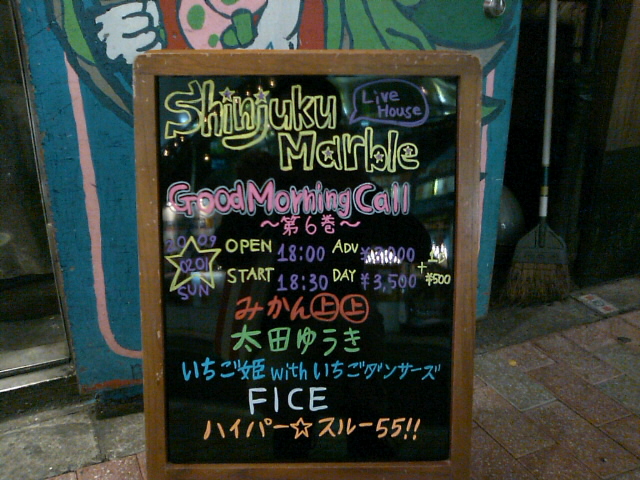 Shinjuku
Live House
Marble
Good Morning Call
～第6巻～
2009 0201 SUN
OPEN 18:00 ADV
START 18:30 DAY ¥3,500 + ¥500
みかん㊤㊤
太田ゆうき
いちご姫 with いちごダンサーズ
FICE
ハイパー☆スルー55!!